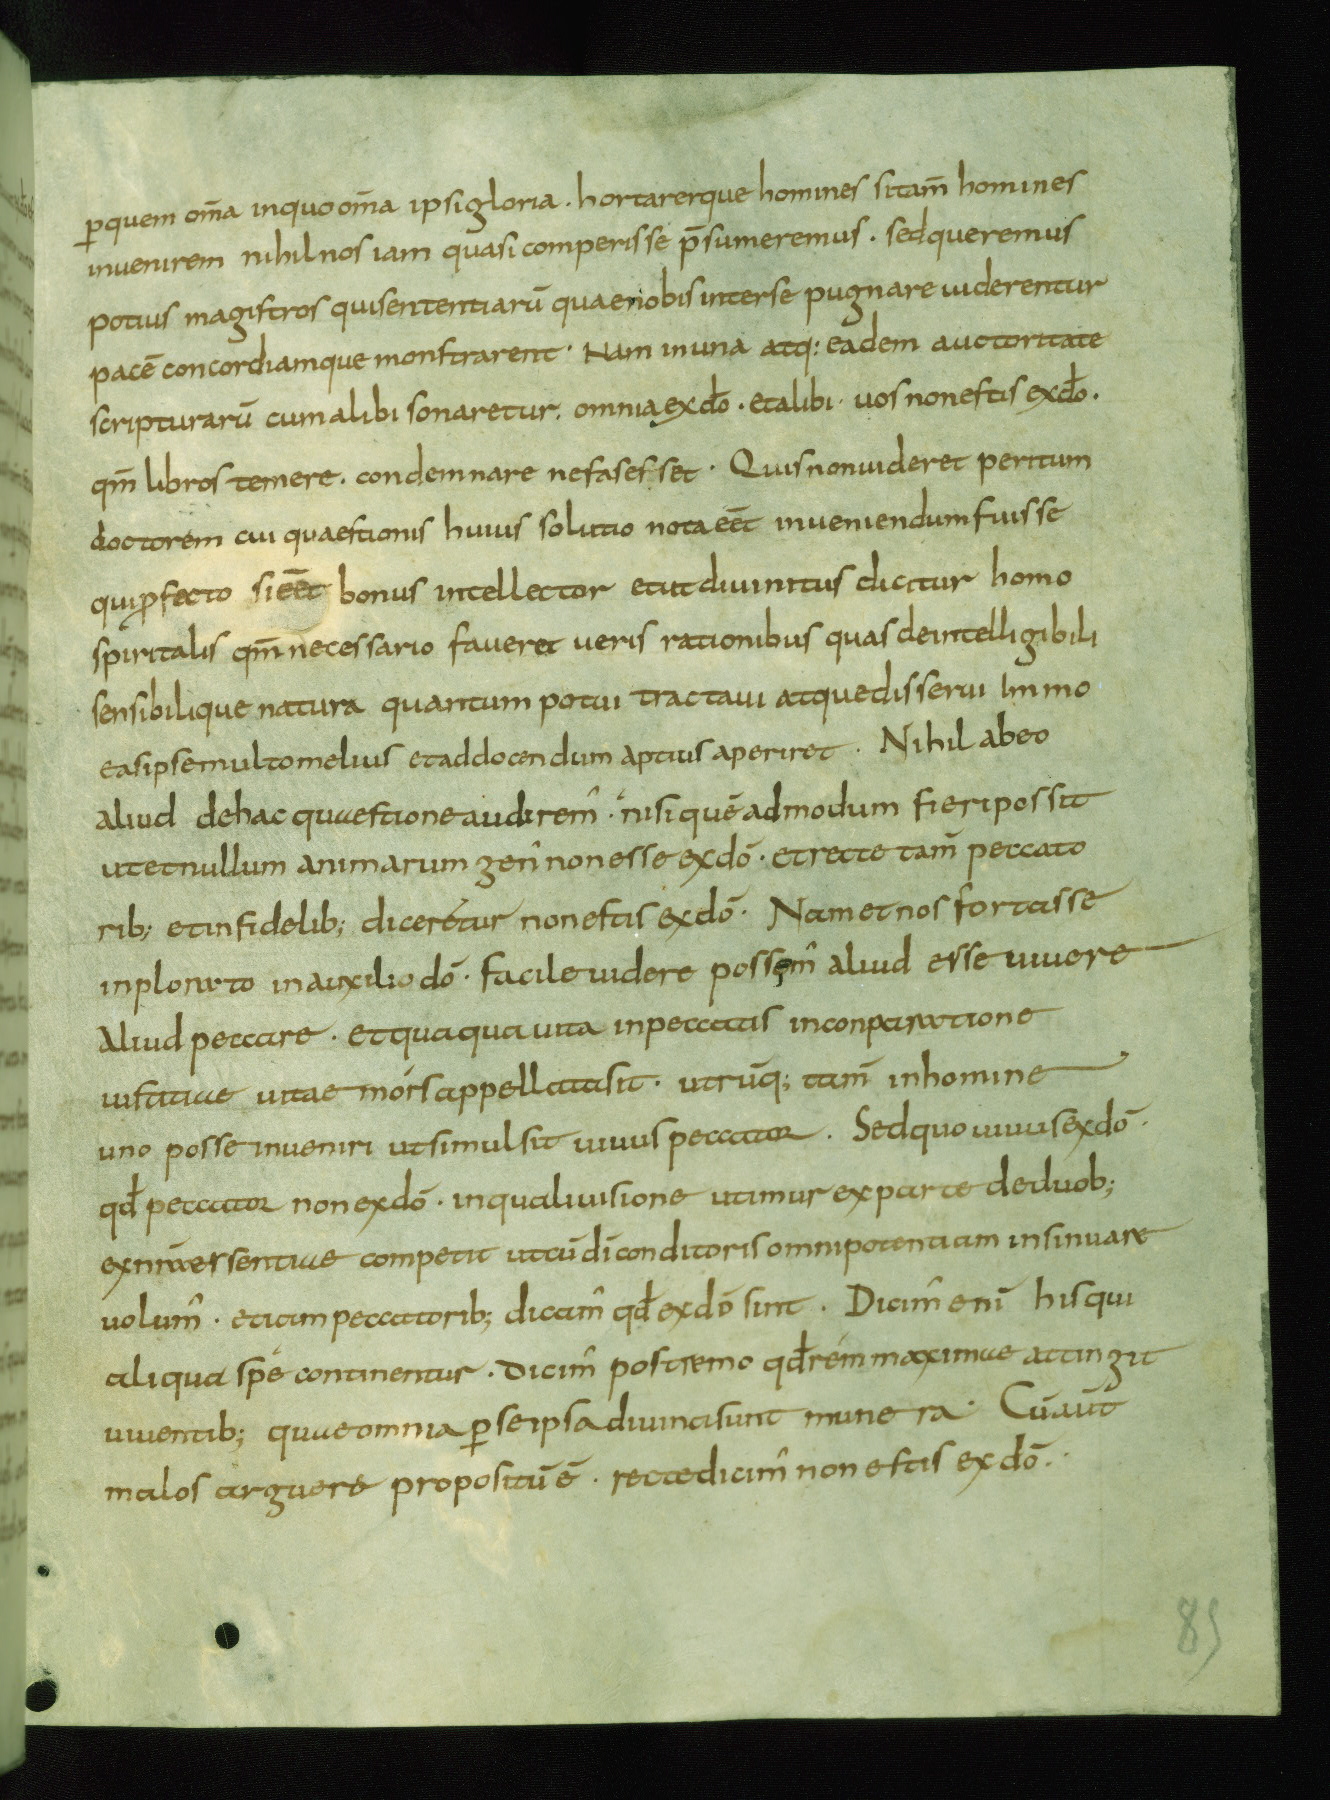 ꝑquem om̅a inquo om̅a ipsi gloria . hortarerque homines si tam̅ homines
inuenirem nihil nos iam quasi comperisse p̅sumeremus . sed queremus
potius magistros qui sententiaru̅ quae nobis inter se pugnare uiderentur
pace̅ concordiamque monstrarent · Nam in una atq: eadem auctoritate
scripturaru̅ cum alibi sonaretur . omnia ex do̅ . et alibi · uos non estis ex do̅ .
qm̅ libros temere . condemnare nefas esset · Quis non uideret peritum
doctorem cui quaestionis huius solutio nota eet̅ inueniendum fuisse
qui ꝓfecto si eet̅ bonus intellector et ut diuinitus dicitur homo
spiritalis qm̅ necessario faueret ueris rationibus quas de intelligibili
sensibilique natura quantum potui tractaui atque disserui Immo
eas ipse multo melius et ad docendum aptius aperiret . Nihil ab eo
aliud de hac quaestione audirem̂ · nisi que̅admodum fieri possit
ut et nullum animarum gen̂ non esse ex do̅ · et recte tam̅ peccato
rib; et infidelib; diceretur non estis ex do̅ · Nam et nos fortasse
inplorato in auxilio do̅ · facile uidere possem̂ aliud esse uiuere
Aliud peccare · et quaqua uita in peccatis in conparatione
iustitiae uitae mors appellata sit · utru̅q; tam̅ in homine
uno posse inueniri ut simul sit uiuus peccator . Sed quo uiuus ex do̅ .
qd̅ peccator non ex do̅ · in qua liuisione utimur ex parte de duob;
ex nra̅ essentiae competit ut cu̅ di̅ conditoris omnipotentiam insinuare
uolum̂ · etiam peccatorib; dicam̂ qd̅ ex do̅ sint . Dicim̂ eni̅ his qui
aliqua spe̅ continentur . Dicim̂ postremo qd̅ rem maximae attingit
uiuentib; quae omnia ꝑ se ipsa diuina sunt munera · Cu̅ aut̅
malos arguere propositu̅ e̅ . recte dicim̂ non estis ex do̅ ·
85